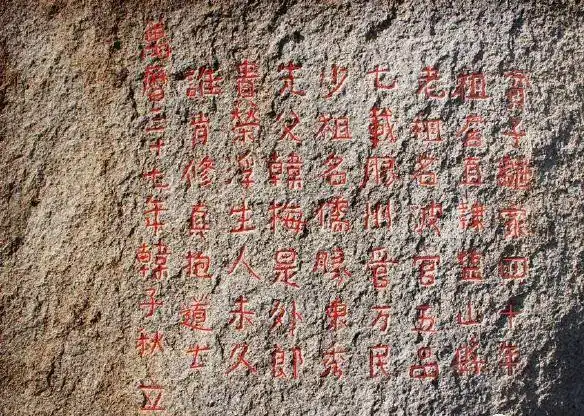 子離家四十年
祖居直隸鹽山縣
老祖名波官五品
七載川管万民
少祖名儒縣東秀
先父韓梅是外郎
貴榮浮生人未久
誰肯修真抱道士
萬曆三十七年韓子秋立